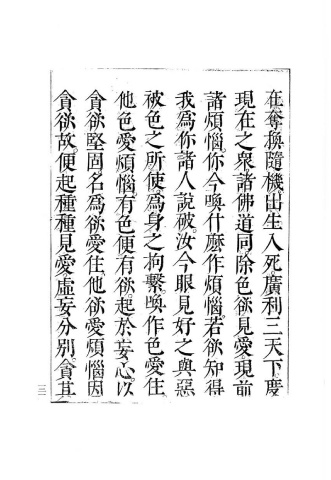 在奪換隨機出生入死廣利三天下慶
現在之衆諸佛道同除色欲見愛現前
諸煩惱你今喚什麽作煩惱若欲知得
我爲你諸人說破汝今眼見好之與惡
被色之所使爲身之拘繫喚作色愛住
他色愛煩惱有色便有欲起於妄心以
貪欲堅固名爲欲愛住他欲愛煩惱因
貪欲故便起種種見愛虛妄分別貪其
三